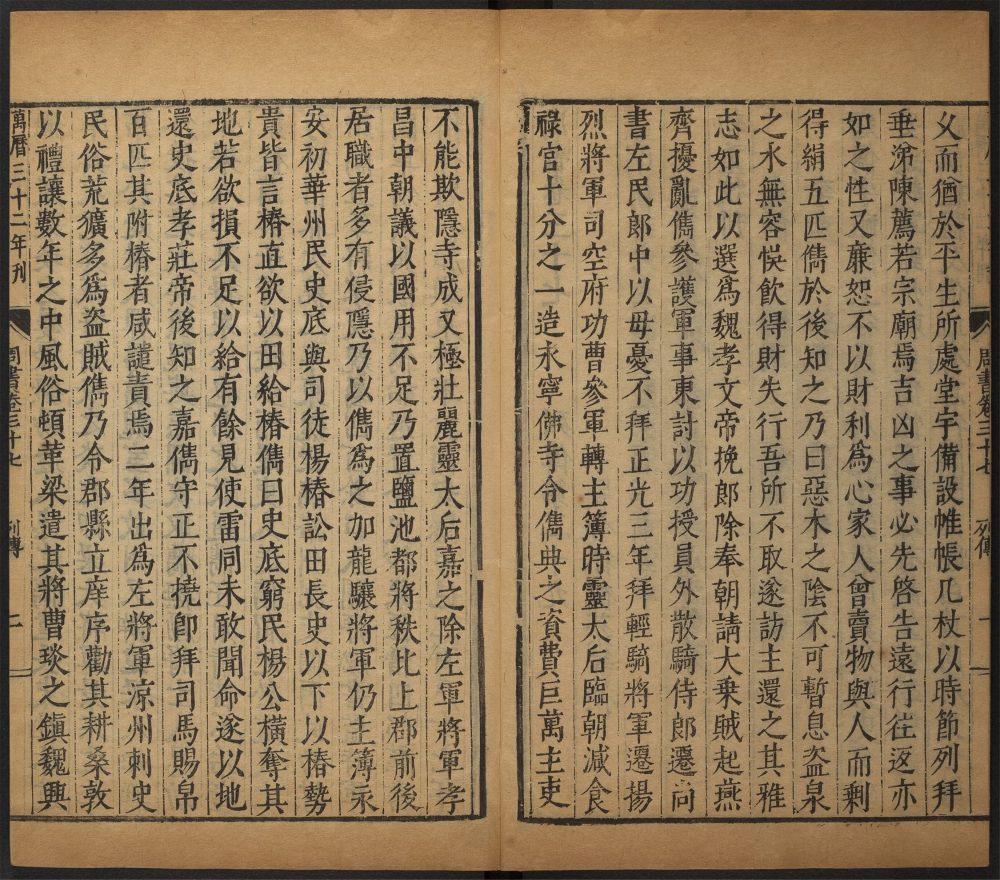 周書卷三十七 列傳 一
父而猶於平生所處堂宇備設帷帳几杖以時節列拜
垂涕陳薦若宗廟焉吉凶之事必先啓告遠行往返亦
如之性又亷恕不以財利爲心家人曾賣物與人而剩
得絹五匹儁於後知之乃曰惡木之陰不可暫息盗泉
之水無容悞飲得財失行吾所不取遂訪主還之其雅
志如此以選爲魏孝文帝挽郎除奉朝請大乗賊起燕
齊擾亂儁參護軍事東討以功授員外散騎侍郎遷尚
書左民郎中以母憂不拜正光三年拜輕騎將軍遷揚
烈將軍司空府功曹參軍轉主簿時靈太后臨朝減食
祿官十分之一造永寧佛寺令儁典之資費巨萬主吏
不能欺隱寺成又極壯麗靈太后嘉之除左軍將軍孝
昌中朝議以國用不足乃置鹽池都將秩比上郡前後
居職者多有侵隱乃以儁爲之加龍驤將軍仍主簿永
安初華州民史底與司徒楊椿訟田長史以下以椿勢
貴皆言椿直欲以田給椿儁曰史底窮民楊公横奪其
地若欲損不足以給有餘見使雷同未敢聞命遂以地
還史底孝莊帝後知之嘉儁守正不撓卽拜司馬賜帛
百匹其附椿者咸譴責焉二年出爲左將軍涼州刺史
民俗荒獷多爲盗賊儁乃令郡縣立庠序勸其耕桑敦
以禮讓數年之中風俗頓革梁遣其將曹琰之鎮魏興
萬曆三十二年刋 周書卷三十七 列傳 二